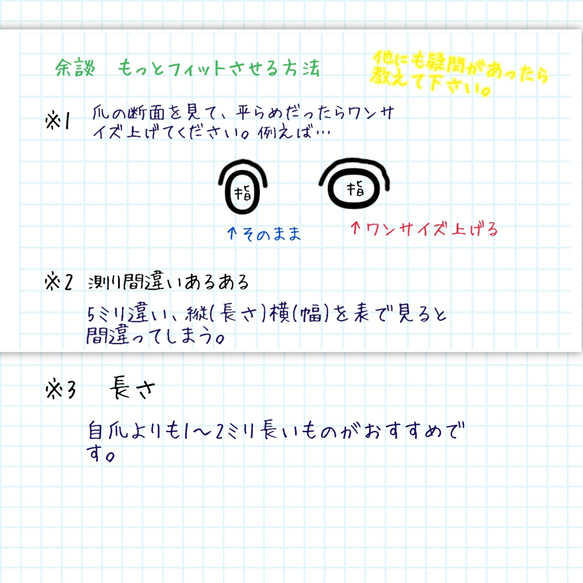 余談 もっとフィットさせる方法
他にも疑問があったら
教えて下さい。
※1 爪の断面を見て、平らめだったらワンサ
イズ上げてください。例えば…
指 指
↑そのまま ↑ワンサイズ上げる
※2 測り間違いあるある
5ミリ違い、縦(長さ)横(幅)を表で見ると
間違ってしまう。
※3 長さ
自爪よりも1〜2ミリ長いものがおすすめで
す。